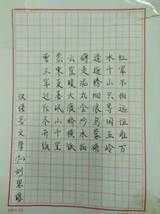 红军不怕远征难万
水千山只等闲五岭
逶迤腾细浪乌蒙磅
礴走泥丸金沙水拍
云崖暖大渡桥横铁
索寒更喜岷山千里
雪三军过后开颜
汉语言文学